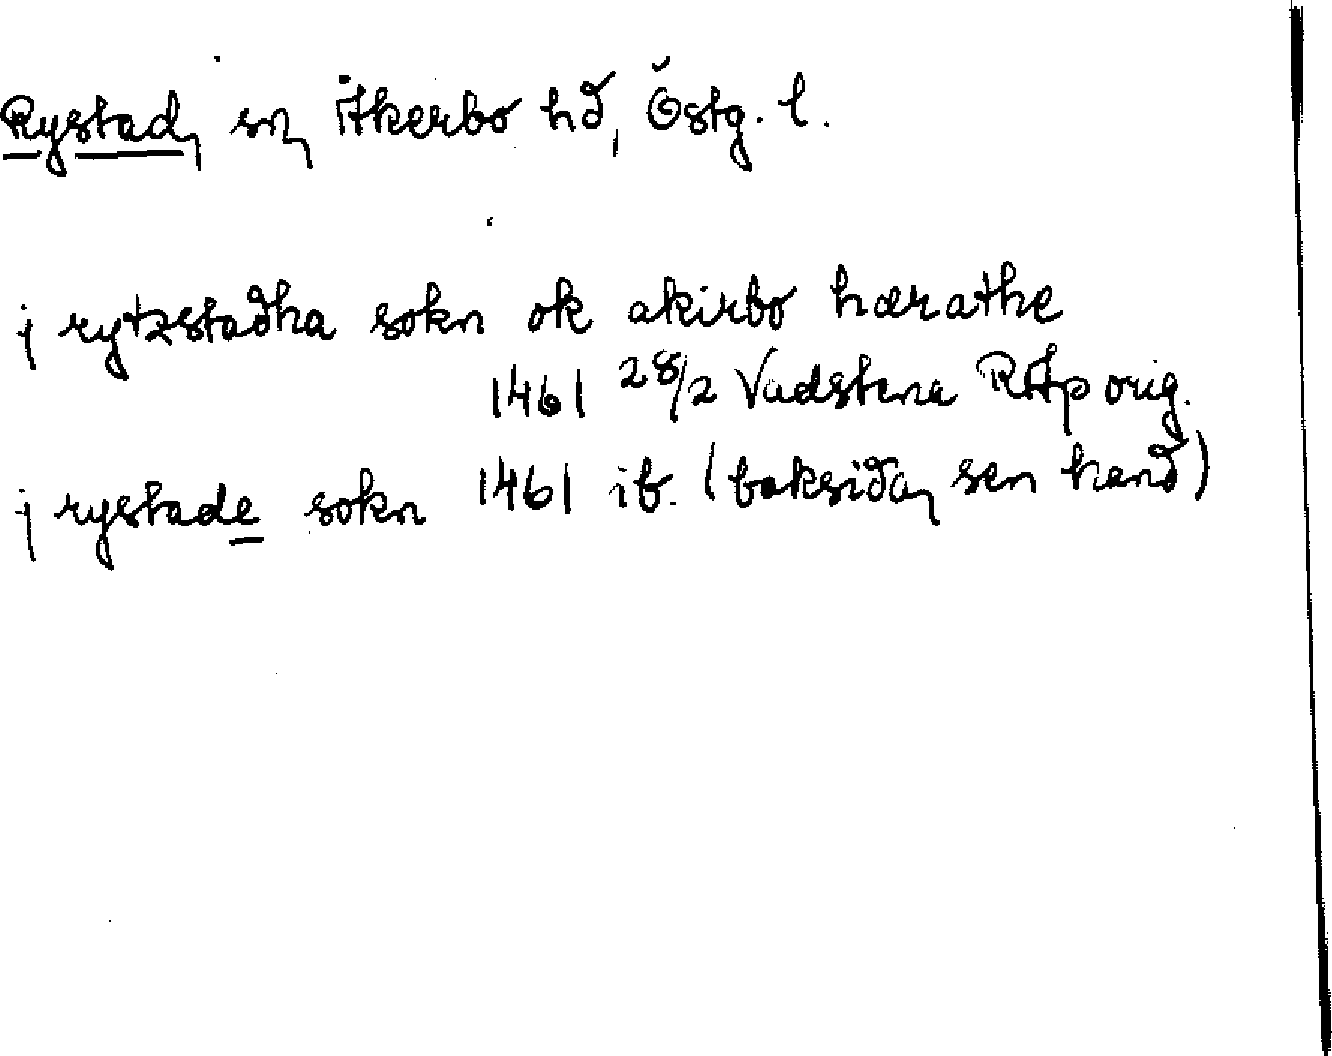 Rystad, sn, Åkerbo hd, Östg. l.
j rytzstadha sokn ok akirbo hærathe
1461 28/2 Vadstena RAp orig.
j rystade sokn 1461 ib. (baksida, sen hand)